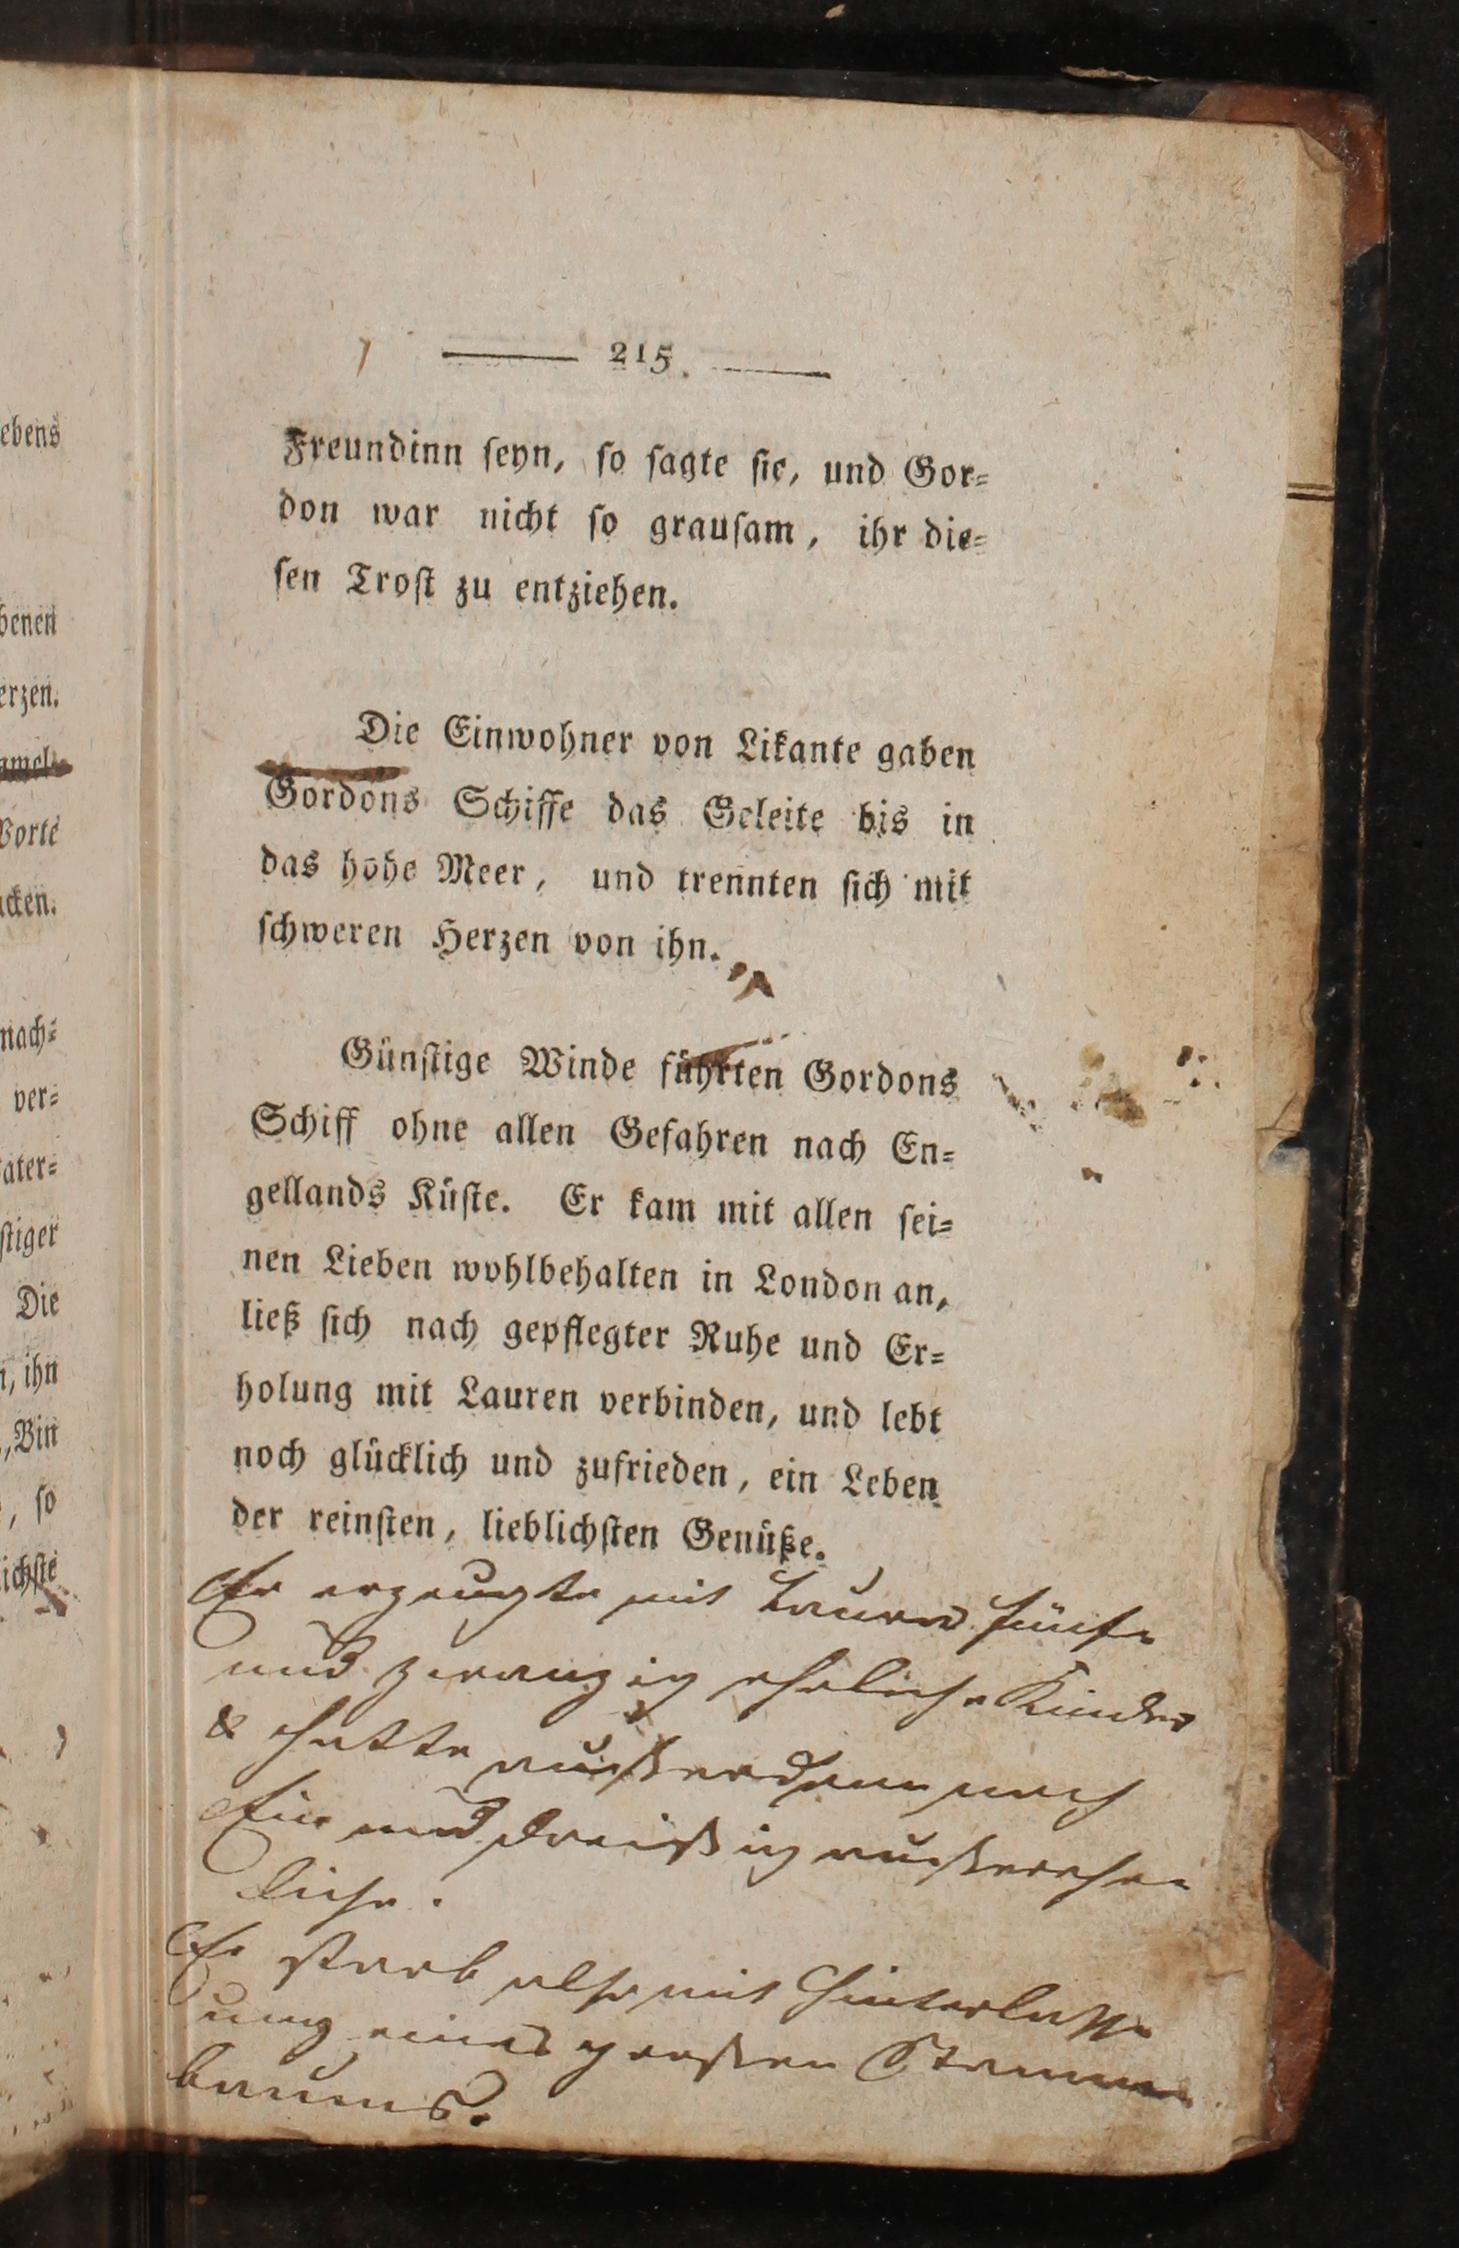 215
Freundinn ſeyn, ſo ſagte ſie, und Gor=
don war nicht ſo grauſam, ihr die=
ſen Troſt zu entziehen.
Die Einwohner von Likante gaben
Gordons Schiffe das Geleite bis in
das hohe Meer, und trennten ſich mit
ſchweren Herzen von ihn.
Günſtige Winde führten Gordons
Schiff ohne allen Gefahren nach En=
gellands Küſte. Er kam mit allen ſei=
nen Lieben wohlbehalten in London an,
ließ ſich nach gepflegter Ruhe und Er=
holung mit Lauren verbinden, und lebt
noch glücklich und zufrieden, ein Leben
der reinſten, lieblichſten Genüße.
Er erzeugte mit Lauren fünf
und zwanzig eheliche Kinder
& hatte außerdem noch
Ein und dreißig außerehe
liche.
Er starb also mit Hinterlass
ung eines großen Stamm
baums.
ebens
benen
erzen.
Worte
cken.
nach=
ver=
ater=
ſtiger
Die
, ihn
„Bin
, ſo
ichſte